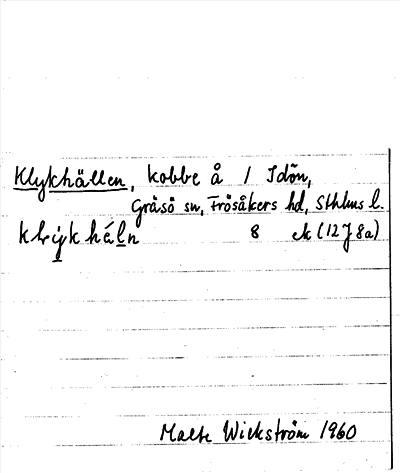 Klykhällen, kobbe å 1 Idön,
Gräsö sn, Frösåkers hd, Sthlms l.
klýk hál̲n 8 ek (12 J 8a)
Malte Wickström 1960